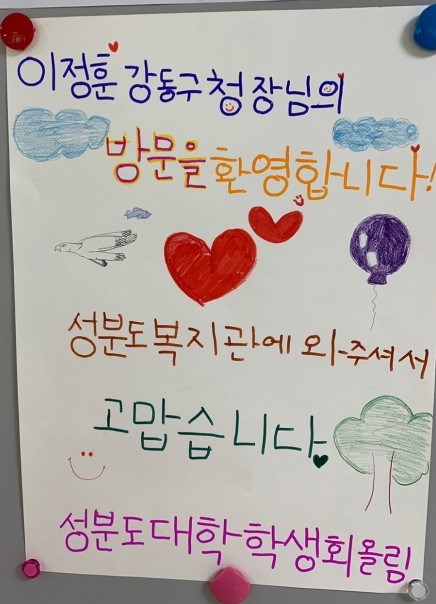 이정훈 강동구청장님의
방문을 환영합니다!
성분도복지관에 와주셔서
고맙습니다
성분도대학학생회올림